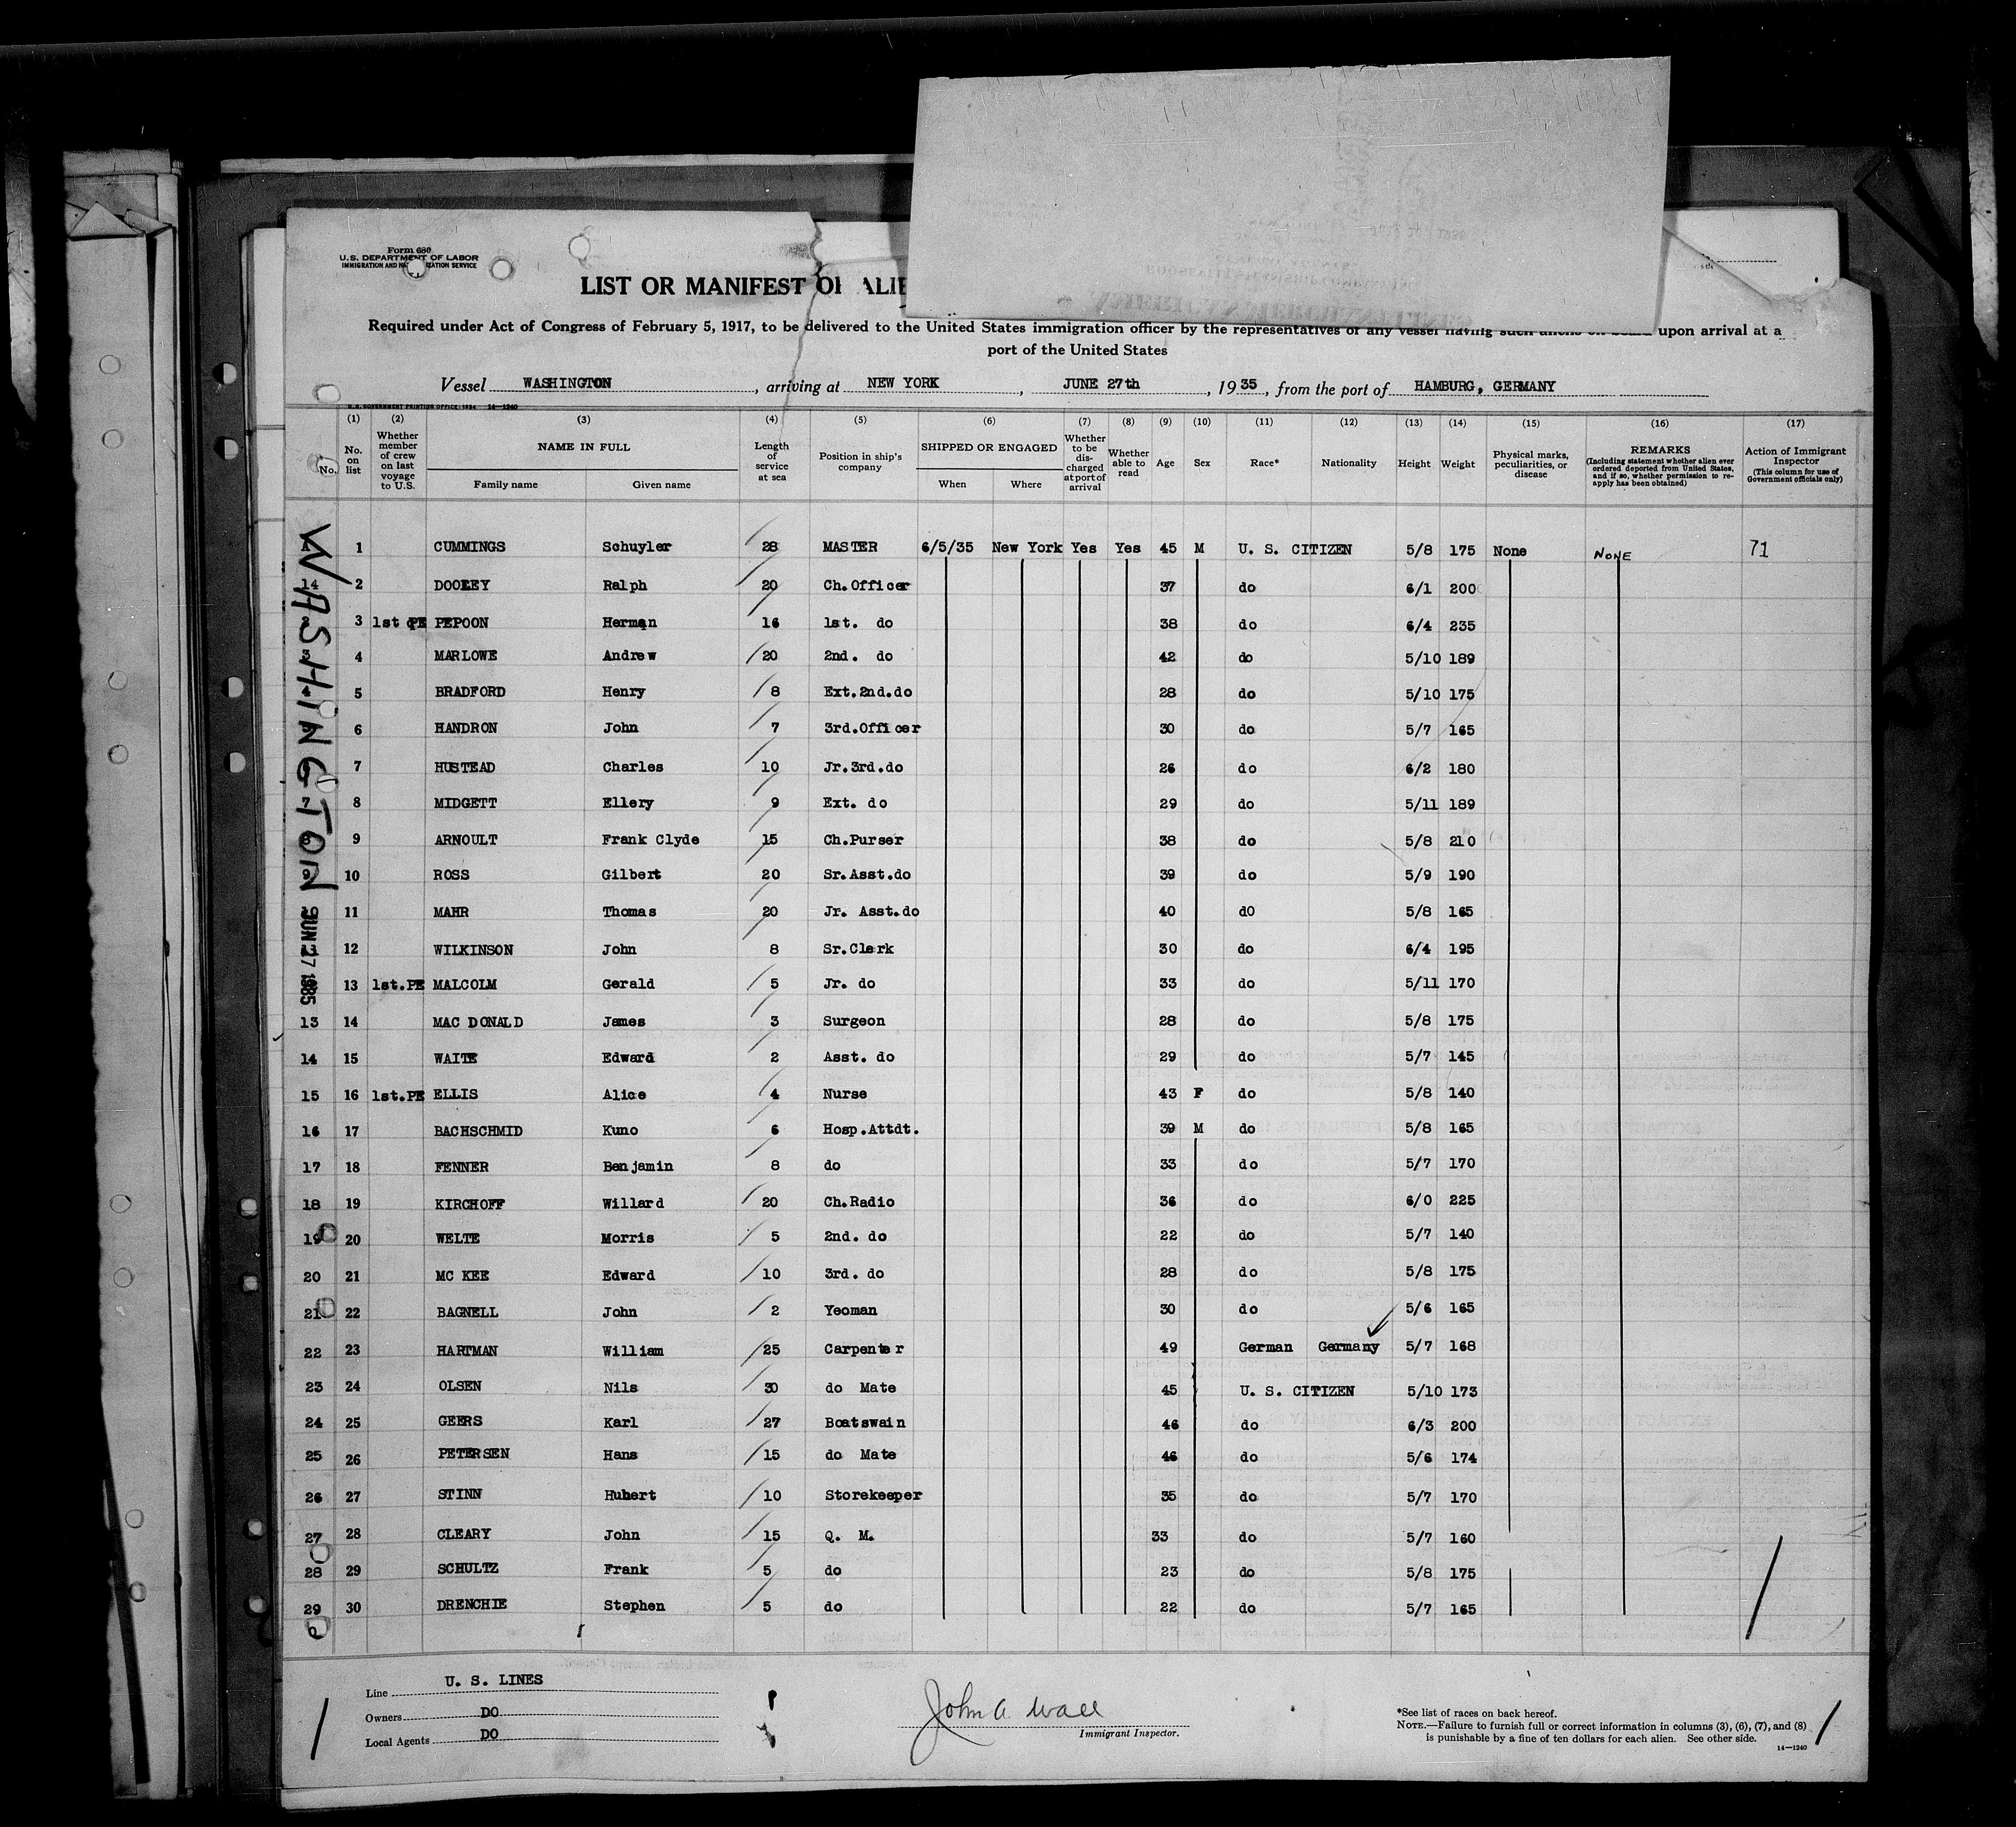 Form 680
U.S. DEPARTMENT OF LABOR
IMMIGRATION AND NATURALIZATION SERVICE
LIST OR MANIFEST OF ALIE
Required under Act of Congress of February 5, 1917, to be delivered to the United States immigration officer by the representatives of any vessel having such aliens on board upon arrival at a
port of the United States
Vessel WASHINGTON, arriving at NEW YORK, JUNE 27th, 1935, from the port of HAMBURG, GERMANY
U.S. GOVERNMENT PRINTING OFFICE: 1934 14—1240
(1) (2) (3) (4) (5) (6) (7) (8) (9) (10) (11) (12) (13) (14) (15) (16) (17)
No. No. on list Whether member of crew on last voyage to U.S. NAME IN FULL Family name Given name Length of service at sea Position in ship's company SHIPPED OR ENGAGED When Where Whether to be discharged at port of arrival Whether able to read Age Sex Race* Nationality Height Weight Physical marks, peculiarities, or disease REMARKS (Including statement whether alien ever ordered deported from United States, and if so, whether permission to re-apply has been obtained) Action of Immigrant Inspector (This column for use of Government officials only)
WASHINGTON
JUN 27 1935
1 CUMMINGS Schuyler 28 MASTER 6/5/35 New York Yes Yes 45 M U. S. CITIZEN 5/8 175 None NONE 71
2 DOOLEY Ralph 20 Ch.Officer 37 do 6/1 200
3 1st PE PEPOON Herman 16 1st. do 38 do 6/4 235
4 MARLOWE Andrew 20 2nd. do 42 do 5/10 189
5 BRADFORD Henry 8 Ext.2nd.do 28 do 5/10 175
6 HANDRON John 7 3rd.Officer 30 do 5/7 165
7 HUSTEAD Charles 10 Jr.3rd.do 26 do 6/2 180
7 8 MIDGETT Ellery 9 Ext. do 29 do 5/11 189
8 9 ARNOULT Frank Clyde 15 Ch.Purser 38 do 5/8 210
10 ROSS Gilbert 20 Sr.Asst.do 39 do 5/9 190
11 MAHR Thomas 20 Jr. Asst.do 40 dO 5/8 165
12 WILKINSON John 8 Sr.Clerk 30 do 6/4 195
13 1st.PE MALCOLM Gerald 5 Jr. do 33 do 5/11 170
13 14 MAC DONALD James 3 Surgeon 28 do 5/8 175
14 15 WAITE Edward 2 Asst. do 29 do 5/7 145
15 16 1st.PE ELLIS Alice 4 Nurse 43 F do 5/8 140
16 17 BACHSCHMID Kuno 6 Hosp.Attdt. 39 M do 5/8 165
17 18 FENNER Benjamin 8 do 33 do 5/7 170
18 19 KIRCHOFF Willard 20 Ch.Radio 36 do 6/0 225
19 20 WELTE Morris 5 2nd. do 22 do 5/7 140
20 21 MC KEE Edward 10 3rd. do 28 do 5/8 175
21 22 BAGNELL John 2 Yeoman 30 do 5/6 165
22 23 HARTMAN William 25 Carpenter 49 German Germany 5/7 168
23 24 OLSEN Nils 30 do Mate 45 U. S. CITIZEN 5/10 173
24 25 GEERS Karl 27 Boatswain 46 do 6/3 200
25 26 PETERSEN Hans 15 do Mate 46 do 5/6 174
26 27 STINN Hubert 10 Storekeeper 35 do 5/7 170
27 28 CLEARY John 15 Q. M. 33 do 5/7 160
28 29 SCHULTZ Frank 5 do 23 do 5/8 175
29 30 DRENCHIE Stephen 5 do 22 do 5/7 165
Line U. S. LINES
Owners DO
Local Agents DO
John A Wall
Immigrant Inspector.
*See list of races on back hereof.
NOTE.—Failure to furnish full or correct information in columns (3), (6), (7), and (8)
is punishable by a fine of ten dollars for each alien. See other side.
14—1240